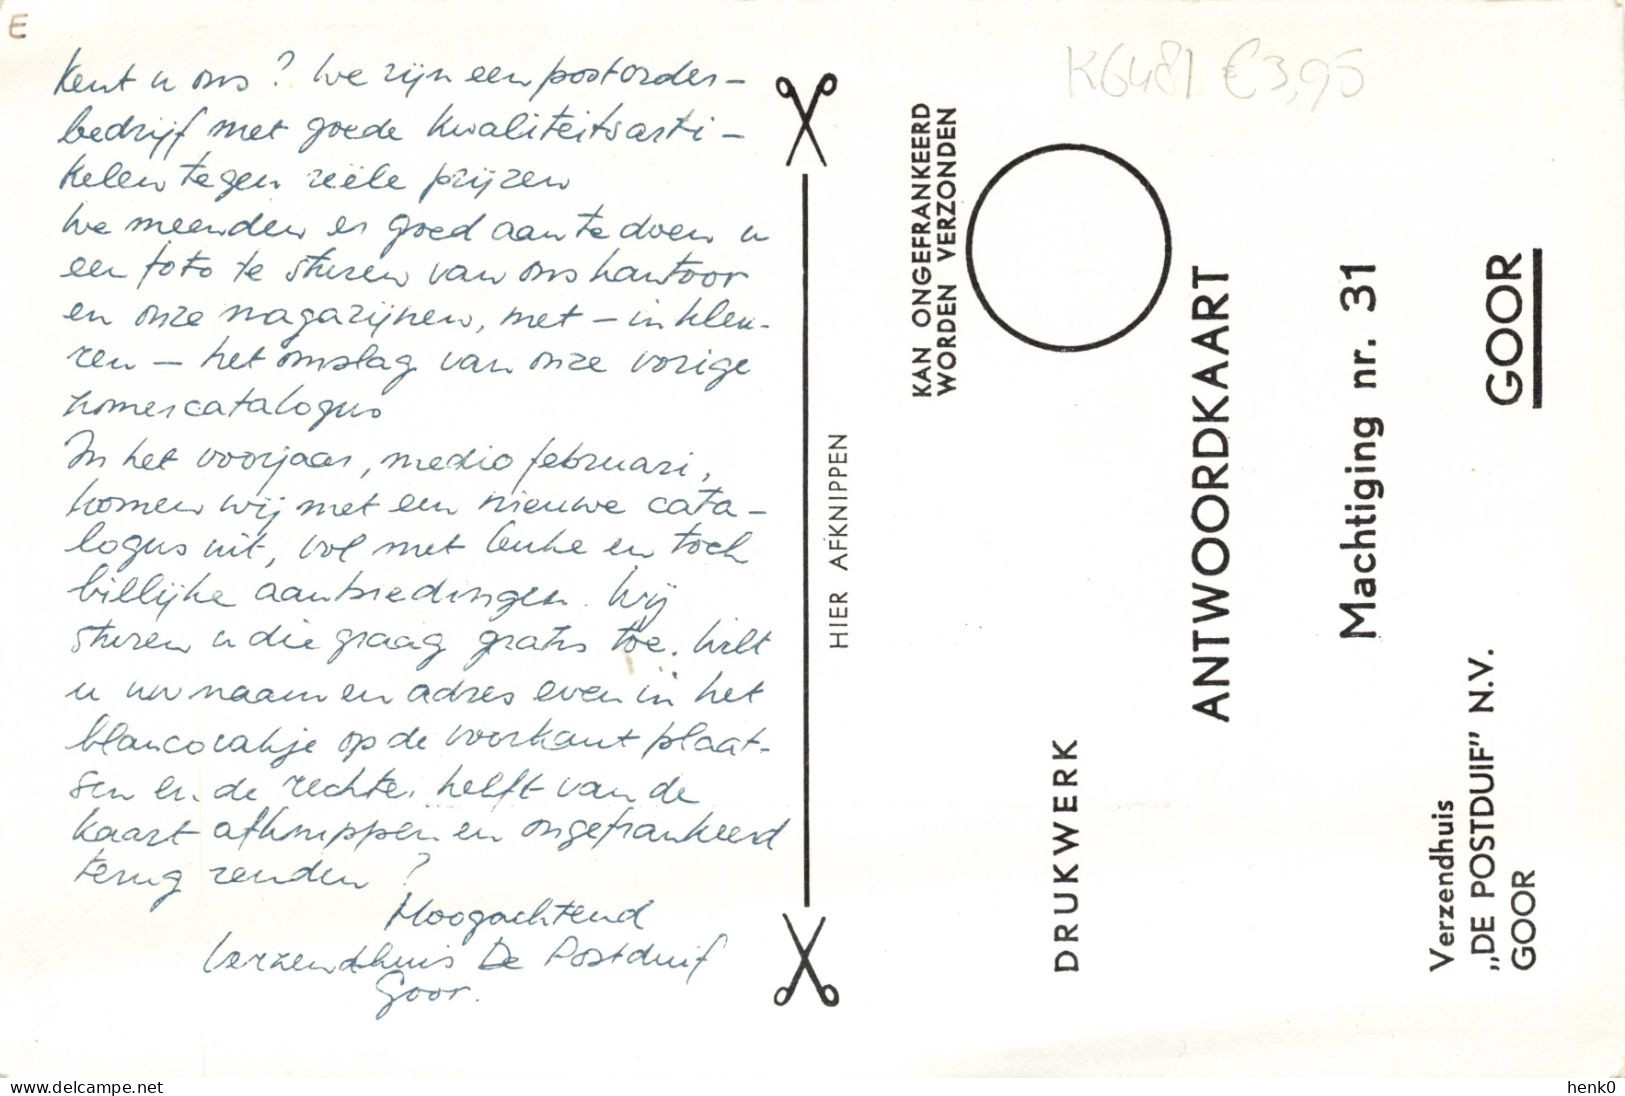 E
Kent u ons? We zijn een postorder-
bedrijf met goede kwaliteitsarti-
kelen tegen reële prijzen
We meenden er goed aan te doen u
een foto te sturen van ons kantoor
en onze magazijnen, met – in kleu-
ren – het omslag van onze vorige
zomercatalogus
In het voorjaar, medio februari,
komen wij met een nieuwe cata-
logus uit, vol met leuke en toch
billijke aanbiedingen. Wij
sturen u die graag gratis toe. Wilt
u uw naam en adres even in het
blancovakje op de voorkant plaat-
sen en de rechter helft van de
kaart afknippen en ongefrankeerd
terug zenden?
Hoogachtend
Verzendhuis De Postduif
Goor.
HIER AFKNIPPEN
K6481 €3,95
KAN ONGEFRANKEERD
WORDEN VERZONDEN
DRUKWERK
ANTWOORDKAART
Machtiging nr. 31
Verzendhuis
„DE POSTDUIF” N.V.
GOOR
GOOR
www.delcampe.net
henk0